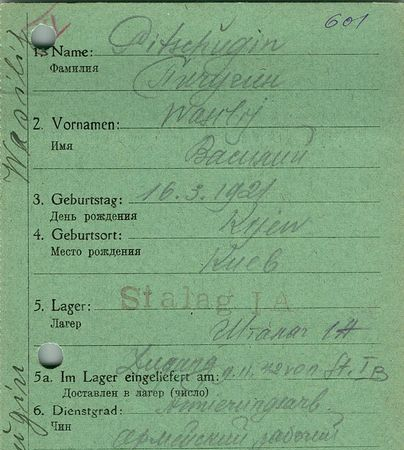 601
1. Name: Pitschugin
Фамилия
Пичугин
2. Vornamen: Wasilij
Имя
Василий
3. Geburtstag: 16.3.1921
День рождения
4. Geburtsort: Kijew
Место рождения
Киев
5. Lager: Stalag IA
Лагер
Шталаг 1А
Zugang 9.11.42 von St. IB
5a. Im Lager eingeliefert am:
Доставлен в лагер (число)
6. Dienstgrad: Armierungsarb.
Чин
Армейский рабочий
Wasilij